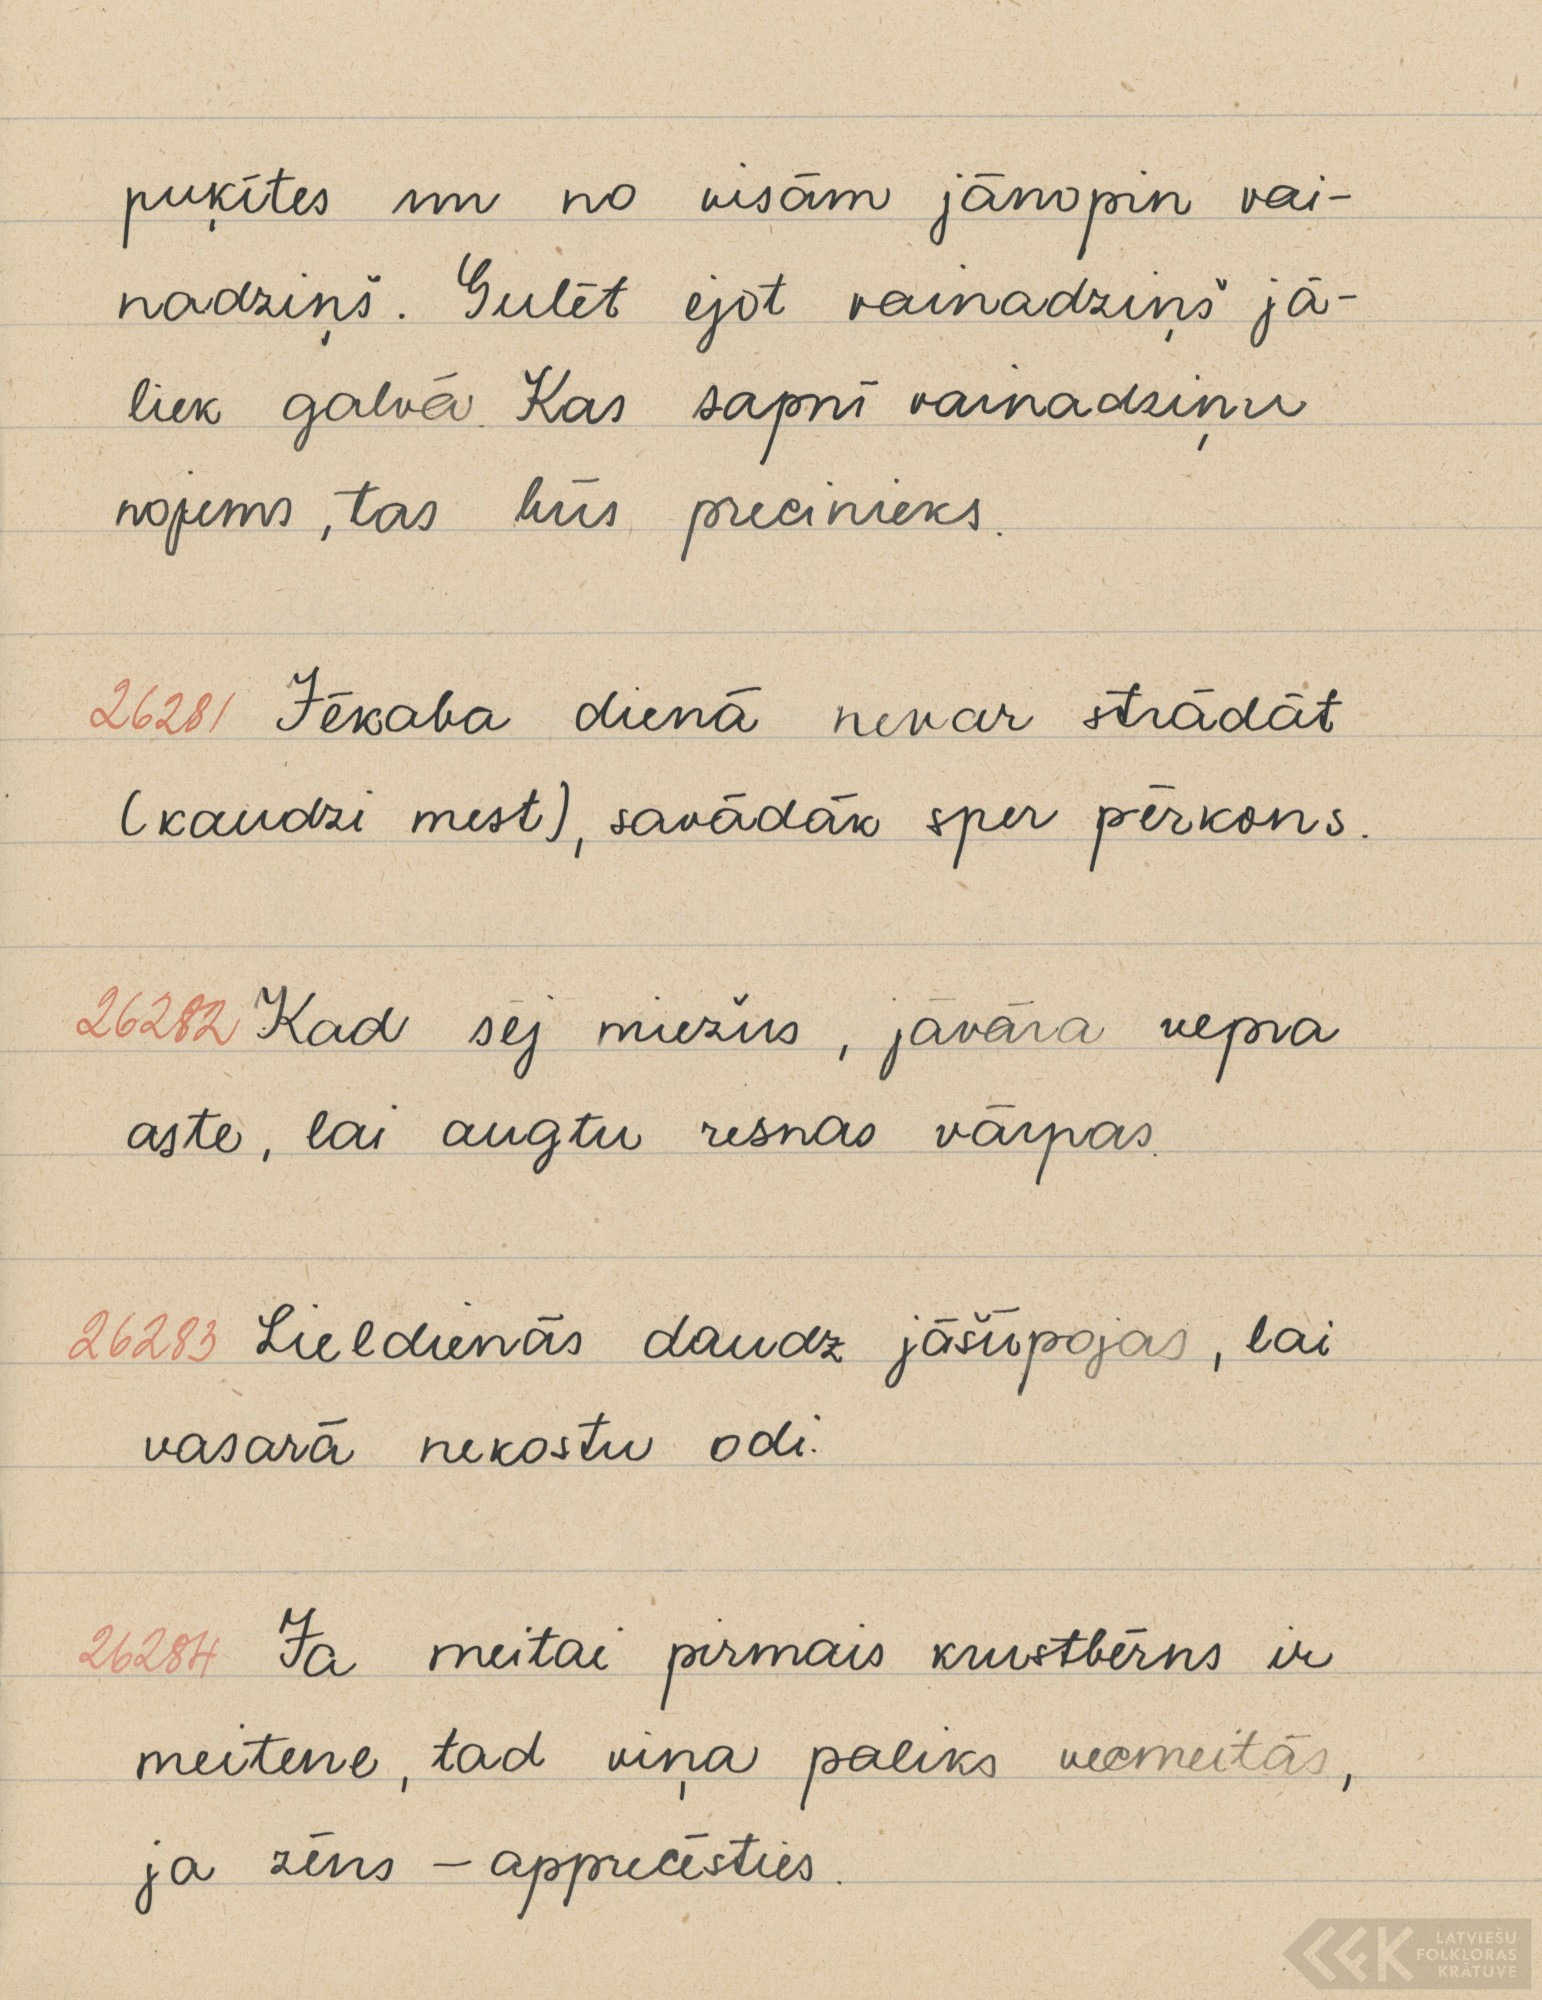 puķītes un no visām jānopin vai-
nadziņš. Gulēt ejot vainadziņš jā-
liek galvā. Kas sapnī vainadziņu
nojems, tas būs precinieks.
26281 Jēkaba dienā nevar strādāt
(kaudzi mest), savādāk sper pērkons.
26282 Kad sēj miežus, jāvāra vepra
aste, lai augtu resnas vārpas.
26283 Lieldienās daudz jāšūpojas, lai
vasarā nekostu odi.
26284 Ja meitai pirmais krustbērns ir
meitene, tad viņa paliks vecmeitās,
ja zēns – apprecēsties.
LATVIEŠU
FOLKLORAS
KRĀTUVE